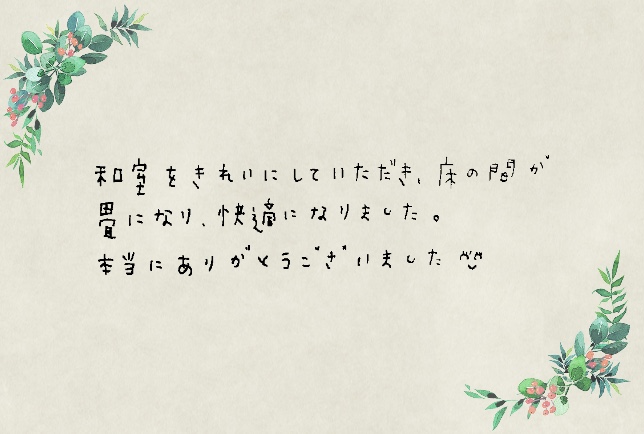 和室をきれいにしていただき、床の間が
畳になり、快適になりました。
本当にありがとうございました